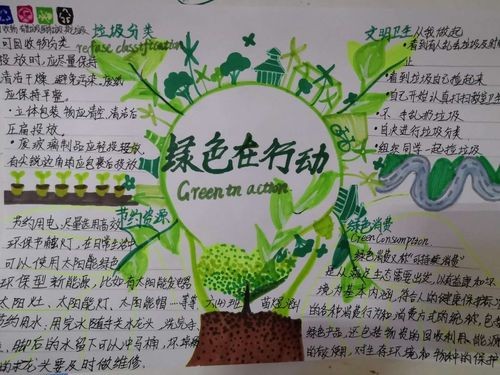 垃圾分类
refuse classification
可回收物分类
投放时,应尽量保持
清洁干燥,避免污染,废纸
应保持平整。
·立体包装物应清空清洁后
压扁投放。
·废玻璃制品应轻投轻放
有尖锐边角的应包裹后投放
文明卫生从我做起
·看到有人乱丢垃圾及时
止
·看到垃圾自己捡起来
·自己开始认真打扫教室卫
·不乱扔垃圾
·自决进行垃圾分类
·组织同学一起捡垃圾
绿色在行动
Green in action
节约资源
节约用电,尽量选用高效
环保节能灯,在日常生活中
可以使用太阳能绿色
环保型新能源,比如有太阳能发电器
太阳灶、太阳能灯、太阳能帽……等等
节约用水,用完水随手关水龙头,洗完
、脚后的水留下可以冲马桶,坏
的水龙头要及时做维修。
六(4)班
绿色消费
Green Consumption
绿色消费又称“可持续消费”
是从满足生态需要出发,以有益健康和环
境为基本内涵,符合人的健康保护
的各种消费行为和消费方式的统称,包
绿色产品,还包括物资的回收利用、能源
的有效使用,对生存环境和物种的保护